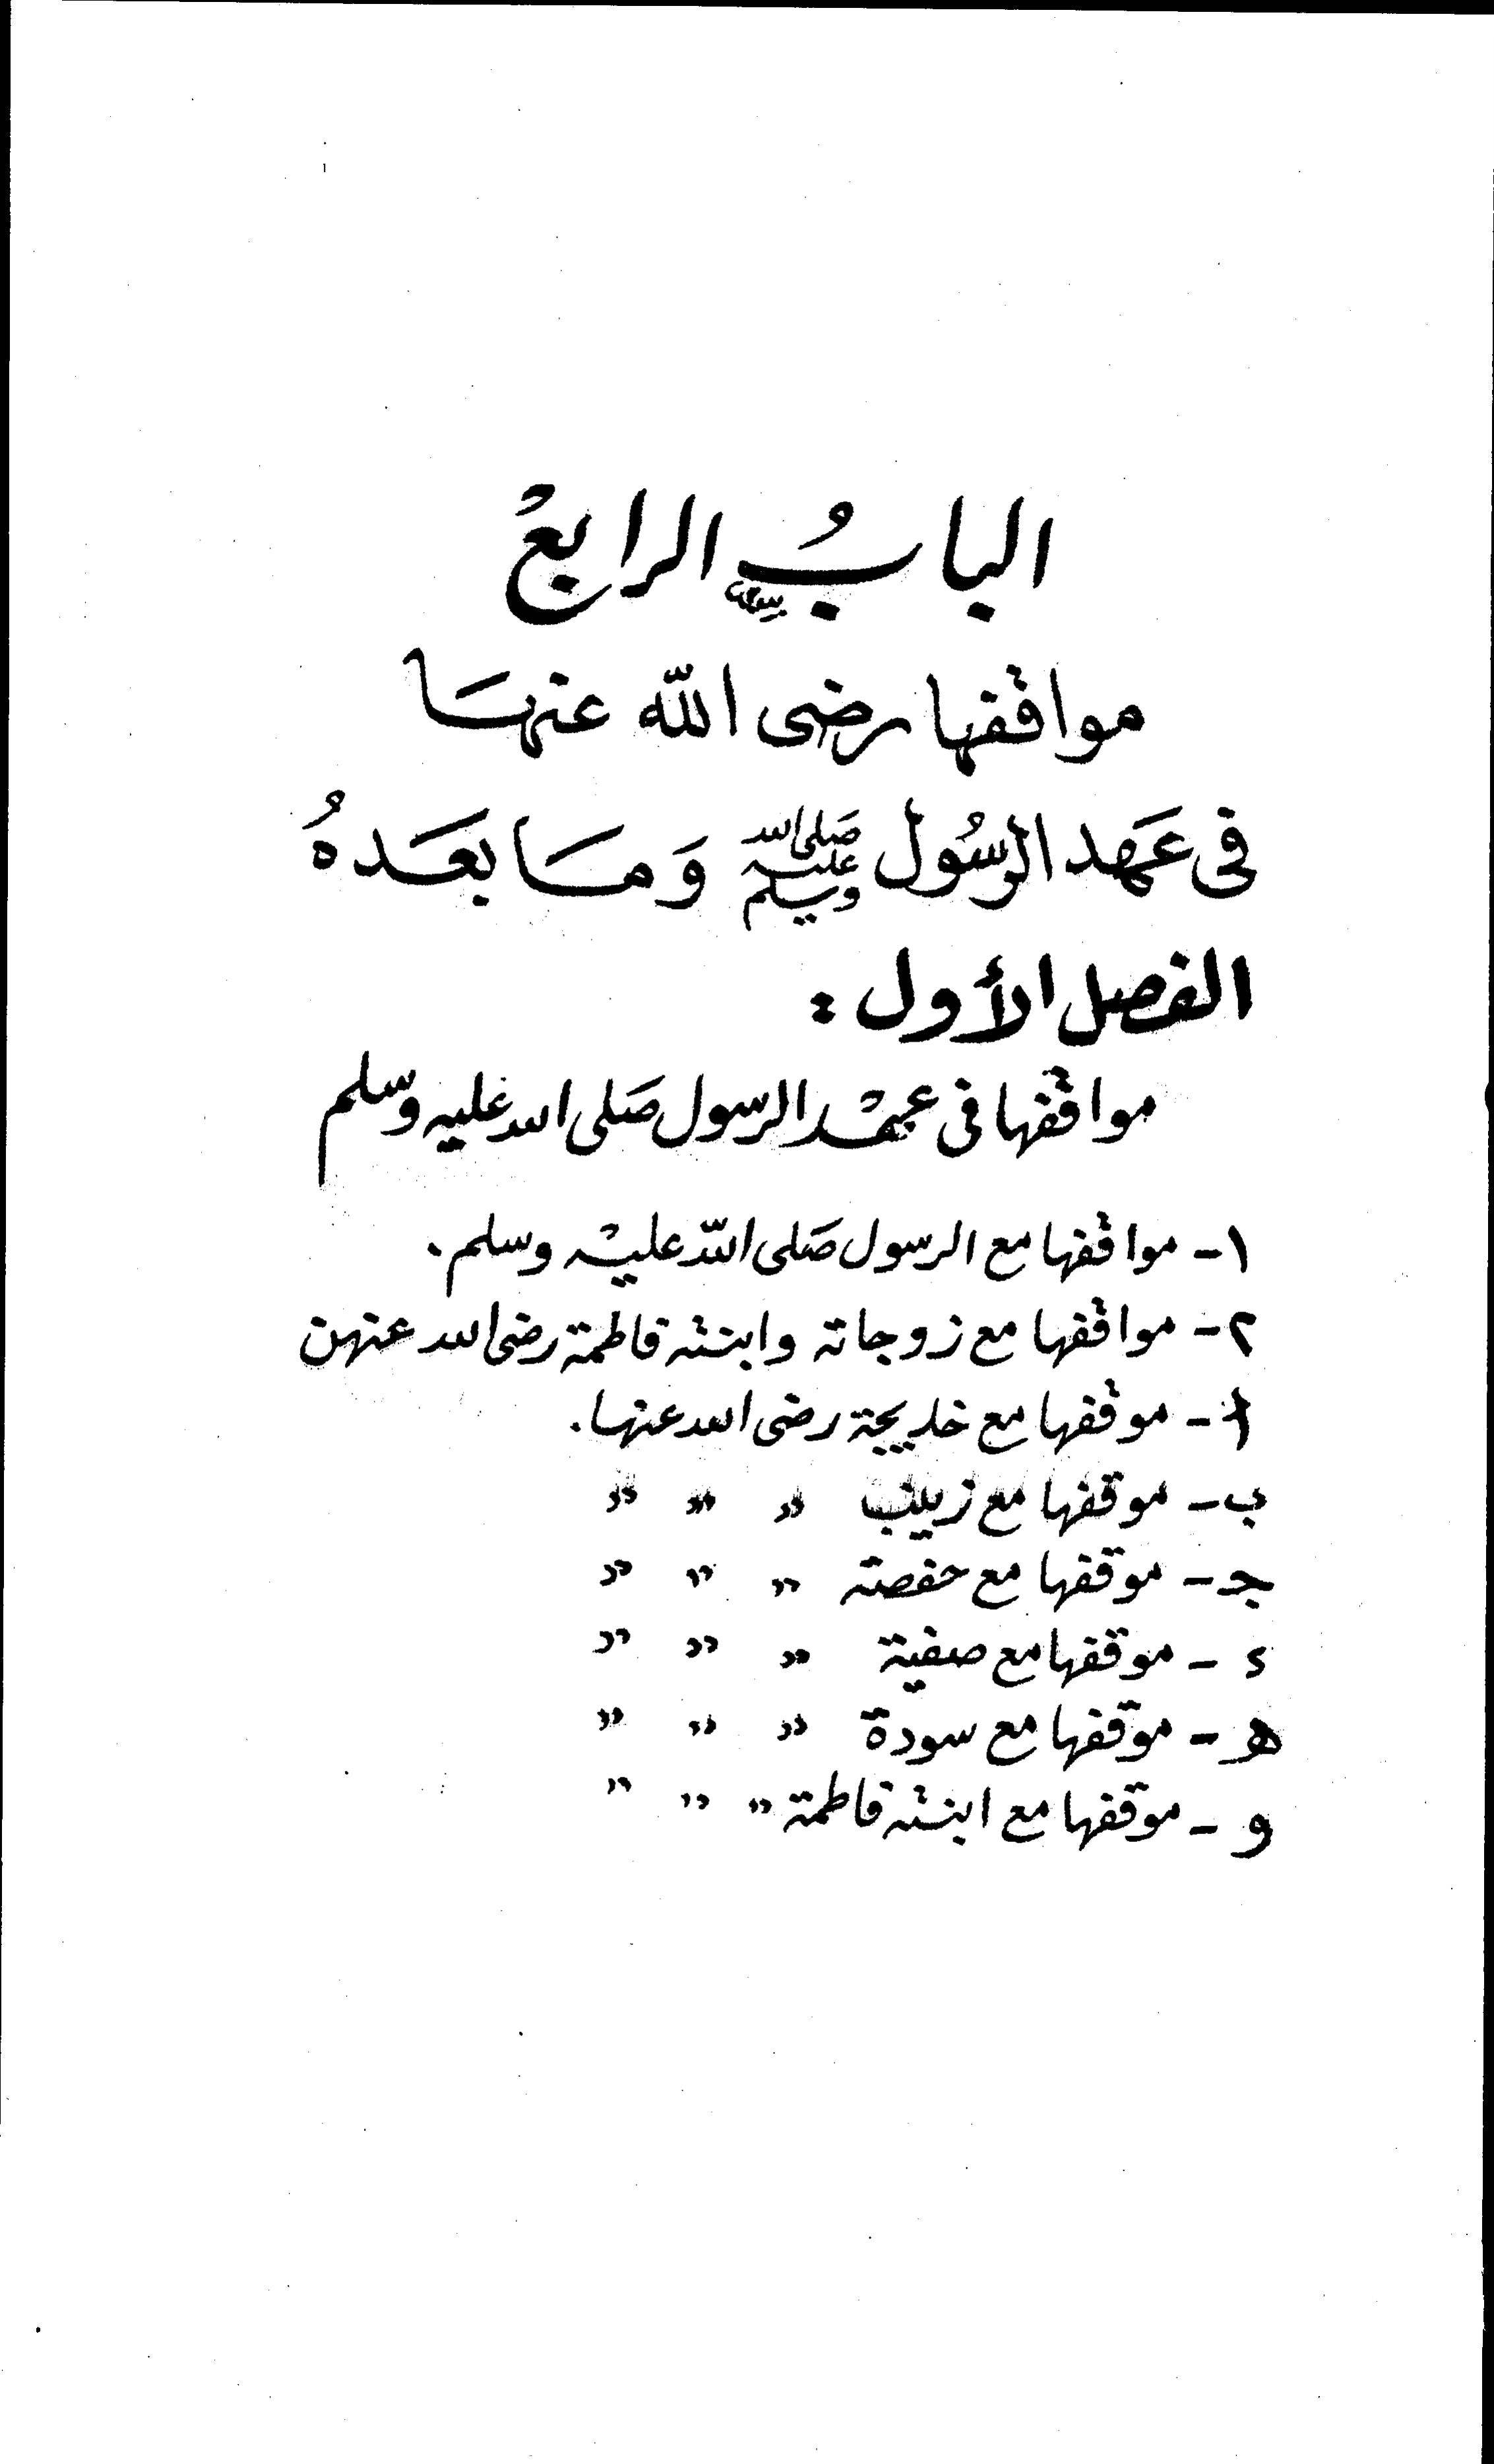 البابُ الرابعُ
مواقفها رضى الله عنهَا
فى عَهد الرسُول صَلى الله عليه وسلم وَمَا بعَدهُ
الفصل الأول :
مواقفها فى عهْد الرسول صَلى الله عَليه وسّلم
١- مواقفها مع الرسول صَلى اللّه عليْه وسلم .
٢- مواقفها مع زوجاته وابنته فاطمة رضى الله عنهن
أ- موقفها مع خديجة رضى الله عنها .
ب- موقفها مع زينب " " "
جـ- موقفها مع حفصة " " "
د - موقفها مع صفية " " "
هـ - موقفها مع سودة " " "
و - موقفها مع ابنته فاطمة " " "